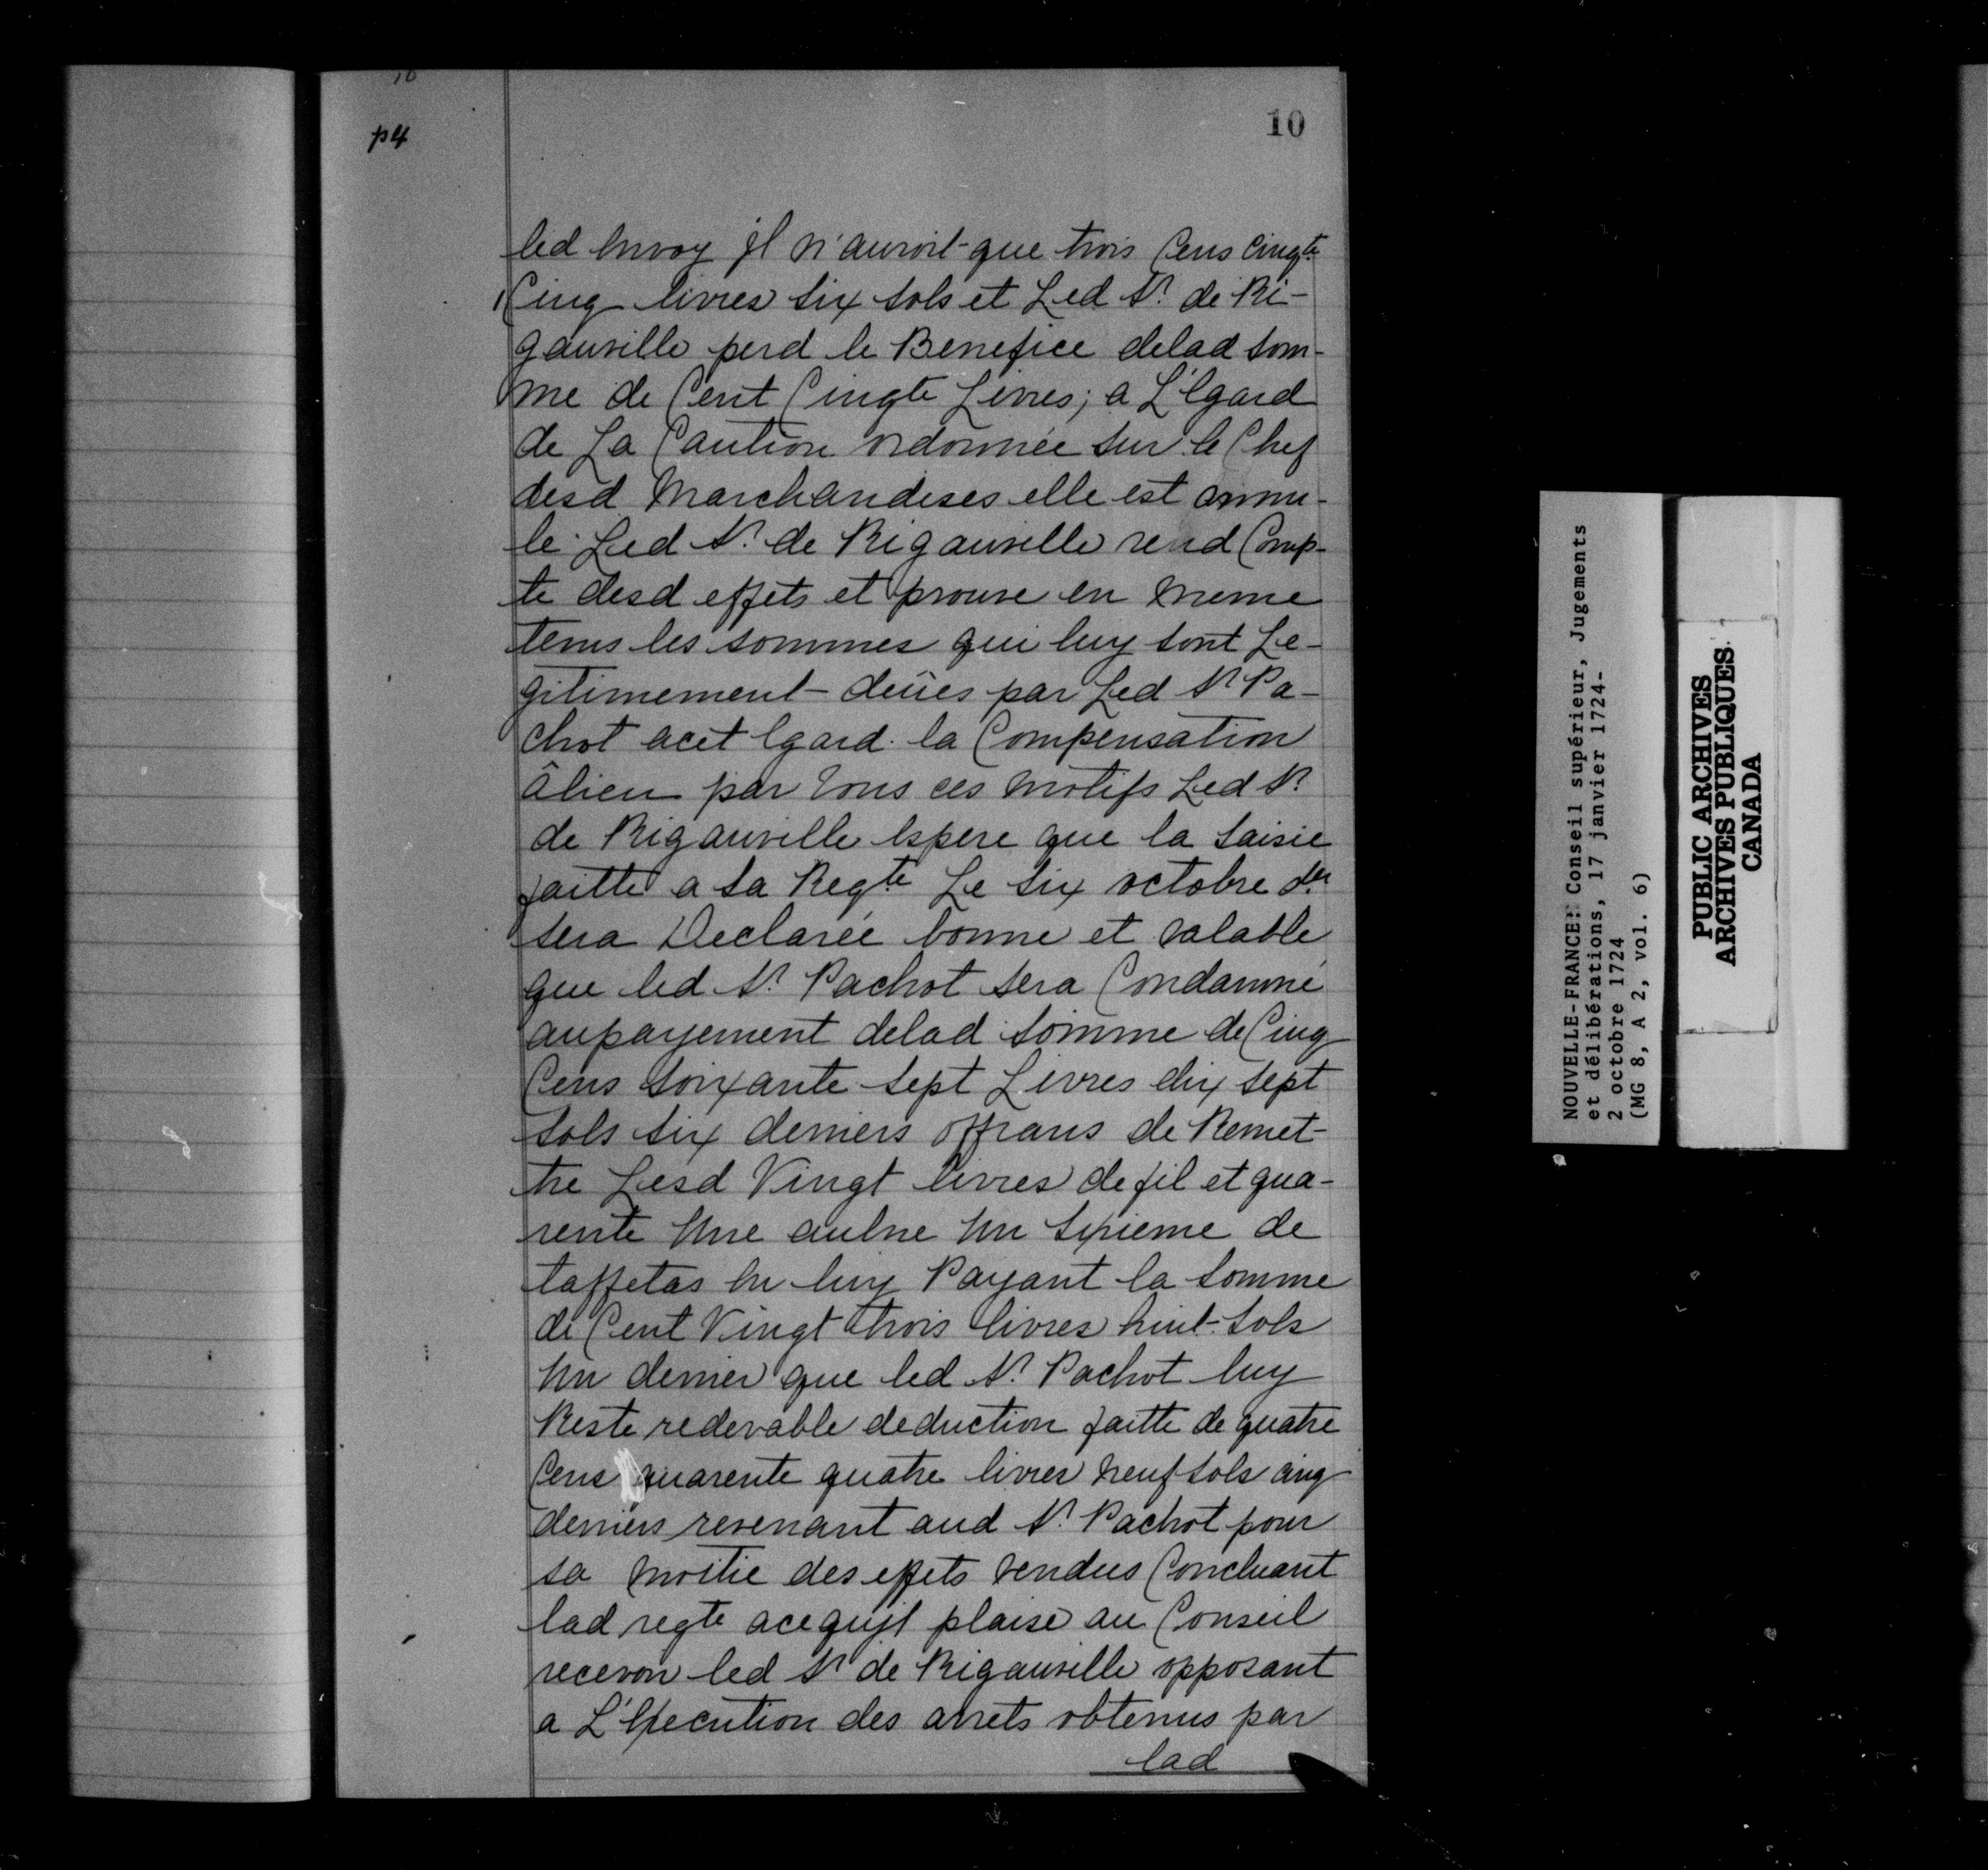 10
p4
10
led Envoy jl n'auroit que trois Cens cinqte
Cinq livres six sols et Led Sr. de Ri-
gauville perd le Benefice delad som-
me de Cent Cinqte Livres; a L'Egard
de La Caution ordonnée sur le Chef
desd Marchandises elle est annu-
le Led Sr. de Rigauville rend Comp-
te desd effets et prouve en meme
tems les sommes qui luy sont Le-
gitimement deües par Led Sr Pa-
chot acet Egard la Compensation
âlieu par tous ces motifs Led Sr.
de Rigauville Espere que la saisie
faitte a sa Reqte Le six octobre der
sera Declarée bonne et valable
que led Sr. Pachot sera Condamné
aupayement delad somme de Cinq
Cens soixante sept Livres dix sept
sols six deniers offrans de Remet-
tre Lesd Vingt livres de fil et qua-
rente Une aulne un sixieme de
taffetas En luy Payant la somme
de Cent Vingt trois livres huit sols
Un denier que led Sr. Pachot luy
Reste redevable deduction faitte de quatre
Cens quarente quatre livres neuf sols cinq
deniers revenant aud Sr. Pachot pour
sa moitie des effets vendus Concluant
lad reqte acequjl plaise au Conseil
recevoir led Sr de Rigauville opposant
a L'Execution des arrets obtenus par
lad
NOUVELLE-FRANCE: Conseil supérieur, Jugements
et délibérations, 17 janvier 1724-
2 octobre 1724
(MG 8, A 2, vol. 6)
PUBLIC ARCHIVES
ARCHIVES PUBLIQUES
CANADA